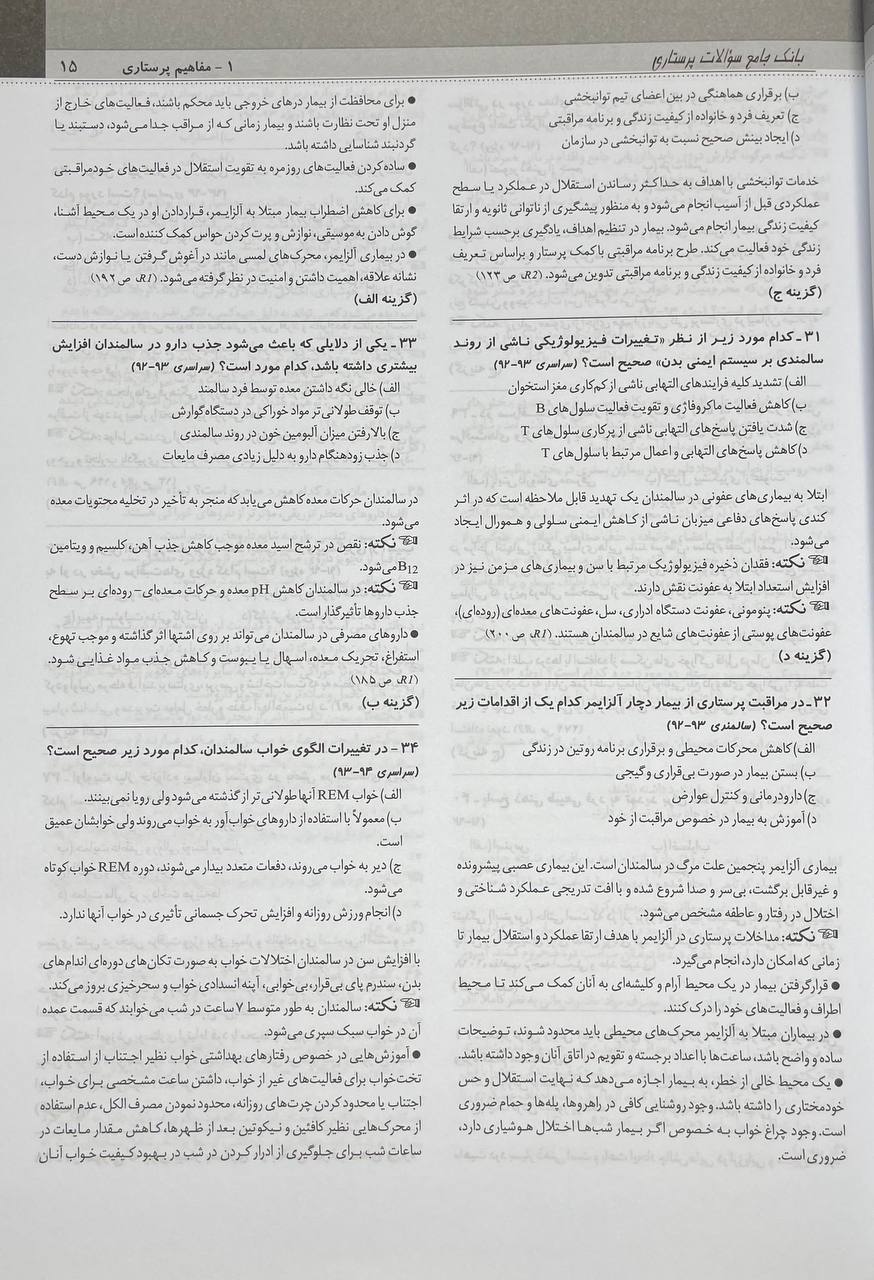 بانک جامع سؤالات پرستاری
۱ - مفاهیم پرستاری
۱۵
ب) برقراری هماهنگی در بین اعضای تیم توانبخشی
ج) تعریف فرد و خانواده از کیفیت زندگی و برنامه مراقبتی
د) ایجاد بینش صحیح نسبت به توانبخشی در سازمان
خدمات توانبخشی با اهداف به حداکثر رساندن استقلال در عملکرد یا سطح
عملکردی قبل از آسیب انجام می‌شود و به منظور پیشگیری از ناتوانی ثانویه و ارتقا
کیفیت زندگی بیمار انجام می‌شود. بیمار در تنظیم اهداف، یادگیری برحسب شرایط
زندگی خود فعالیت می‌کند. طرح برنامه مراقبتی با کمک پرستار و براساس تعریف
فرد و خانواده از کیفیت زندگی و برنامه مراقبتی تدوین می‌شود. (R2، ص ۱۲۳)
(گزینه ج)
۳۱ ـ کدام مورد زیر از نظر «تغییرات فیزیولوژیکی ناشی از روند
سالمندی بر سیستم ایمنی بدن» صحیح است؟ (سراسری ۹۳-۹۲)
الف) تشدید کلیه فرایندهای التهابی ناشی از کم‌کاری مغز استخوان
ب) کاهش فعالیت ماکروفاژی و تقویت فعالیت سلول‌های B
ج) شدت یافتن پاسخ‌های التهابی ناشی از پرکاری سلول‌های T
د) کاهش پاسخ‌های التهابی و اعمال مرتبط با سلول‌های T
ابتلا به بیماری‌های عفونی در سالمندان یک تهدید قابل ملاحظه است که در اثر
کندی پاسخ‌های دفاعی میزبان ناشی از کاهش ایمنی سلولی و همورال ایجاد
می‌شود.
نکته: فقدان ذخیره فیزیولوژیک مرتبط با سن و بیماری‌های مزمن نیز در
افزایش استعداد ابتلا به عفونت نقش دارند.
نکته: پنومونی، عفونت دستگاه ادراری، سل، عفونت‌های معده‌ای (روده‌ای)،
عفونت‌های پوستی از عفونت‌های شایع در سالمندان هستند. (R1، ص ۲۰۰)
(گزینه د)
۳۲ ـ در مراقبت پرستاری از بیمار دچار آلزایمر کدام یک از اقدامات زیر
صحیح است؟ (سالمندی ۹۳-۹۲)
الف) کاهش محرکات محیطی و برقراری برنامه روتین در زندگی
ب) بستن بیمار در صورت بی‌قراری و گیجی
ج) دارودرمانی و کنترل عوارض
د) آموزش به بیمار در خصوص مراقبت از خود
بیماری آلزایمر پنجمین علت مرگ در سالمندان است. این بیماری عصبی پیشرونده
و غیرقابل برگشت، بی‌سر و صدا شروع شده و با افت تدریجی عملکرد شناختی و
اختلال در رفتار و عاطفه مشخص می‌شود.
نکته: مداخلات پرستاری در آلزایمر با هدف ارتقا عملکرد و استقلال بیمار تا
زمانی که امکان دارد، انجام می‌گیرد.
● قرارگرفتن بیمار در یک محیط آرام و کلیشه‌ای به آنان کمک می‌کند تا محیط
اطراف و فعالیت‌های خود را درک کنند.
● در بیماران مبتلا به آلزایمر محرک‌های محیطی باید محدود شوند، توضیحات
ساده و واضح باشد، ساعت‌ها با اعداد برجسته و تقویم در اتاق آنان وجود داشته باشد.
● یک محیط خالی از خطر، به بیمار اجازه می‌دهد که نهایت استقلال و حس
خودمختاری را داشته باشد. وجود روشنایی کافی در راهروها، پله‌ها و حمام ضروری
است. وجود چراغ خواب به خصوص اگر بیمار شب‌ها اختلال هوشیاری دارد،
ضروری است.
● برای محافظت از بیمار درهای خروجی باید محکم باشند، فعالیت‌های خارج از
منزل او تحت نظارت باشند و بیمار زمانی که از مراقب جدا می‌شود، دستبند یا
گردنبند شناسایی داشته باشد.
● ساده کردن فعالیت‌های روزمره به تقویت استقلال در فعالیت‌های خودمراقبتی
کمک می‌کند.
● برای کاهش اضطراب بیمار مبتلا به آلزایمر، قراردادن او در یک محیط آشنا،
گوش دادن به موسیقی، نوازش و پرت کردن حواس کمک کننده است.
● در بیماری آلزایمر، محرک‌های لمسی مانند در آغوش گرفتن یا نوازش دست،
نشانه علاقه، اهمیت داشتن و امنیت در نظر گرفته می‌شود. (R1، ص ۱۹۲)
(گزینه الف)
۳۳ ـ یکی از دلایلی که باعث می‌شود جذب دارو در سالمندان افزایش
بیشتری داشته باشد، کدام مورد است؟ (سراسری ۹۳-۹۲)
الف) خالی نگه داشتن معده توسط فرد سالمند
ب) توقف طولانی‌تر مواد خوراکی در دستگاه گوارش
ج) بالا رفتن میزان آلبومین خون در روند سالمندی
د) جذب زودهنگام دارو به دلیل زیادی مصرف مایعات
در سالمندان حرکات معده کاهش می‌یابد که منجر به تأخیر در تخلیه محتویات معده
می‌شود.
نکته: نقص در ترشح اسید معده موجب کاهش جذب آهن، کلسیم و ویتامین
B12 می‌شود.
نکته: در سالمندان کاهش pH معده و حرکات معده‌ای- روده‌ای بر سطح
جذب داروها تأثیرگذار است.
● داروهای مصرفی در سالمندان می‌تواند بر روی اشتها اثر گذاشته و موجب تهوع،
استفراغ، تحریک معده، اسهال یا یبوست و کاهش جذب مواد غذایی شود.
(R1، ص ۱۸۵)
(گزینه ب)
۳۴ - در تغییرات الگوی خواب سالمندان، کدام مورد زیر صحیح است؟
(سراسری ۹۴-۹۳)
الف) خواب REM آنها طولانی‌تر از گذشته می‌شود ولی رویا نمی‌بینند.
ب) معمولاً با استفاده از داروهای خواب‌آور به خواب می‌روند ولی خوابشان عمیق
است.
ج) دیر به خواب می‌روند، دفعات متعدد بیدار می‌شوند، دوره REM خواب کوتاه
می‌شود.
د) انجام ورزش روزانه و افزایش تحرک جسمانی تأثیری در خواب آنها ندارد.
با افزایش سن در سالمندان اختلالات خواب به صورت تکان‌های دوره‌ای اندام‌های
بدن، سندرم پای بی‌قرار، بی‌خوابی، آپنه انسدادی خواب و سحرخیزی بروز می‌کند.
نکته: سالمندان به طور متوسط ۷ ساعت در شب می‌خوابند که قسمت عمده
آن در خواب سبک سپری می‌شود.
● آموزش‌هایی در خصوص رفتارهای بهداشتی خواب نظیر اجتناب از استفاده از
تخت‌خواب برای فعالیت‌های غیر از خواب، داشتن ساعت مشخصی برای خواب،
اجتناب یا محدود کردن چرت‌های روزانه، محدود نمودن مصرف الکل، عدم استفاده
از محرک‌هایی نظیر کافئین و نیکوتین بعد از ظهرها، کاهش مقدار مایعات در
ساعات شب برای جلوگیری از ادرار کردن در شب در بهبود کیفیت خواب آنان